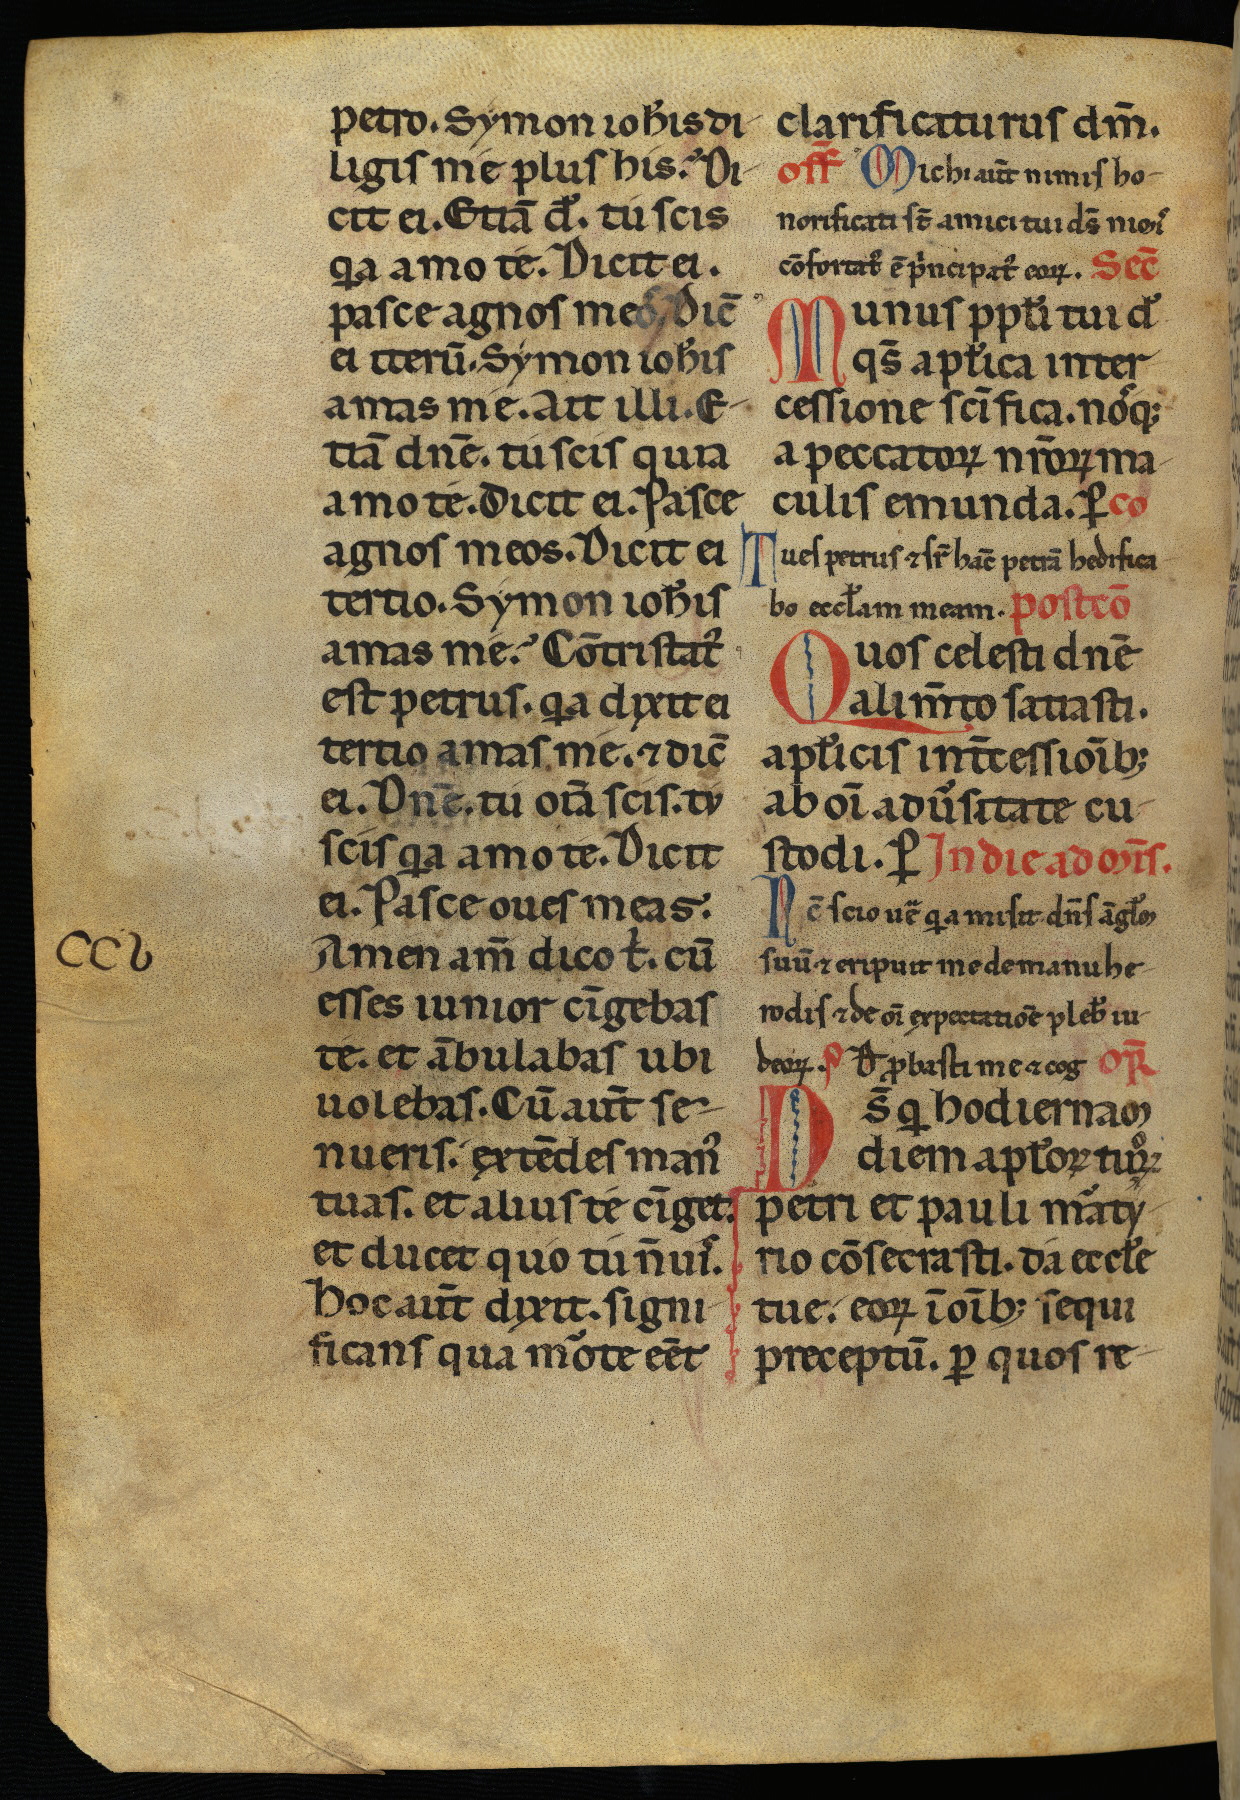 petro. Symon ioh̄is di-
ligis me plus his? Di-
cit ei. Etiā d̄e. tu scis
q̄a amo te. Dicit ei.
pasce agnos meos. Dic̄
ei iterū. Symon ioh̄is
amas me. Ait illi. E-
tiā dn̄e. tu scis quia
amo te. Dicit ei. Pasce
agnos meos. Dicit ei
tertio. Symon ioh̄is
amas me? Cōtristat᷑
est petrus. q̄a dixit ei
tertio amas me. ⁊ dic̄
ei. Dn̄e. tu oīa scis. tu
scis q̄a amo te. Dicit
ei. Pasce oues meas.
Amen am̄ dico t̄. cū
esses iunior cīgebas
te. et ābulabas ubi
uolebas. Cū aut̄ se-
nueris. extēdes man᷒
tuas. et alius te cīget.
et ducet quo tu n̄ uis.
Hoc aut̄ dixit. signi
ficans qua morte eēt
ccb
clarificaturus dm̄.
off̄ Michi aut̄ nimis ho-
norificati st̄ amici tui ds̄ nimis
cōfortat᷑ ē p̄ncipat᷒ eoꝝ. Sec̄
Munus pp̄li tui d̄e
qs̄ apl̄ica inter
cessione sc̄ifica. nosq;
a peccatoꝝ nr̄oꝝ ma-
culis emunda. ꝑ co
Tu es petrus ⁊ sr̄ hāc petrā hedifica
bo eccl̄am meam. postcō
Quos celesti dn̄e
alim̄to satiasti.
apl̄icis int̄cessioīb;
ab oī aduersitate cu-
stodi. ꝑ In die ad mis̄.
Nc̄ scio ue᷑ q̄a misit dn̄s āgl̄m
suū ⁊ eripuit me de manu he-
rodis ⁊ de oī expectatiōe pleb̄ iu-
deoꝝ. p̄ D̄ ꝓbasti me ⁊ cog or̄
Ds̄ q̄ hodiernam
diem apl̄oꝝ tuoꝝ
petri et pauli marty-
rio cōsecrasti. da eccl̄e
tue. eoꝝ ī oīb; sequi
preceptū. ꝑ quos re-